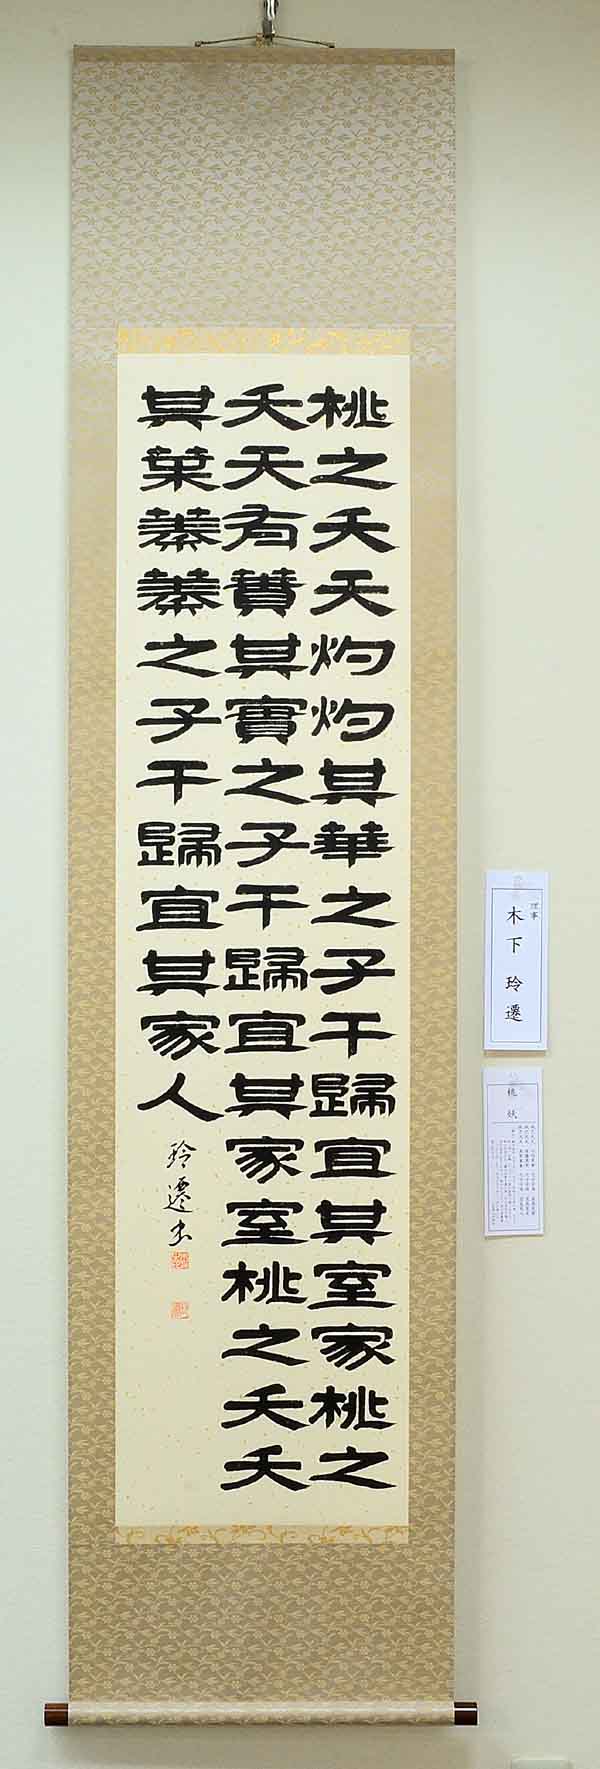 桃之夭夭灼灼其華之子于歸宜其室家桃之
夭夭有蕡其實之子于歸宜其家室桃之夭夭
其葉蓁蓁之子于歸宜其家人
玲遷書
理事
木下 玲遷